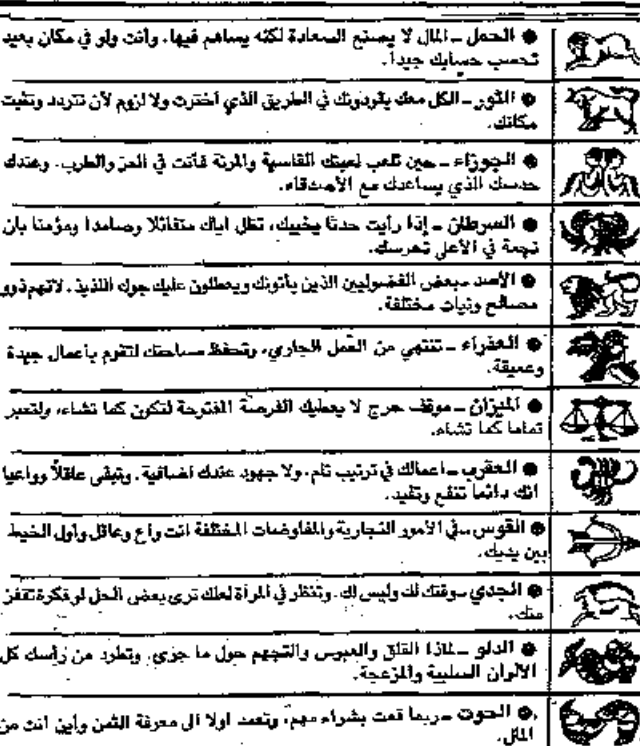 ● الحمل ـ المال لا يصنع السعادة لكنه يساهم فيها. وأنت ولو في مكان بعيد
تحسب حسابك جيداً.
● الثور ـ الكل معك يقودونك في الطريق الذي اخترت ولا لزوم لأن تتردد وتثبت
مكانك.
● الجوزاء ـ حين تلعب لعبتك القاسية والمرنة فأنت في الحز والطرب. وعندك
حدسك الذي يساعدك مع الأصدقاء.
● السرطان ـ إذا رأيت حدثا يخيبك، تظل اياك متفائلا وصامدا ومؤمنا بان
نجمة في الأعلى تحرسك.
● الأسد ـ بعض الفضوليين الذين يأتونك ويعطلون عليك جوك اللذيذ. لاتهم ذوو
مصالح ونيات مختلفة.
● العذراء ـ تنتهي من العمل الجاري، وتحفظ مساحتك لتقوم بأعمال جيدة
وعميقة.
● الميزان ـ موقف حرج لا يعطيك الفرصة المقترحة لتكون كما تشاء، ولتعبر
تماما كما تشاء.
● العقرب ـ اعمالك في ترتيب تام. ولا جهود عندك اضافية. وتبقى عاقلاً وواعيا
انك دائما تنفع وتفيد.
● القوس ـ في الأمور التجارية والمفاوضات المختلفة انت واع وعاقل وأول الخيط
بين يديك.
● الجدي ـ وقتك لك وليس لك. وتنظر في المرآة لعلك ترى بعض الحل او فكرة تقفز
عنك.
● الدلو ـ لماذا القلق والعبوس والتجهم حول ما جرى. وتطرد من رأسك كل
الألوان السلبية والمزعجة.
● الحوت ـ ربما قمت بشراء مهم، وتعمد اولا الى معرفة الثمن وأين انت من
المال.